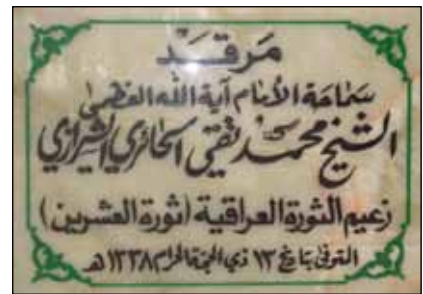 مرقد
سماحة الأمام آية الله العظمى
الشيخ محمد تقي الحائري الشيرازي
زعيم الثورة العراقية (ثورة العشرين)
المتوفى بتاريخ ١٣ ذي الحجة الحرام ١٣٣٨ هـ